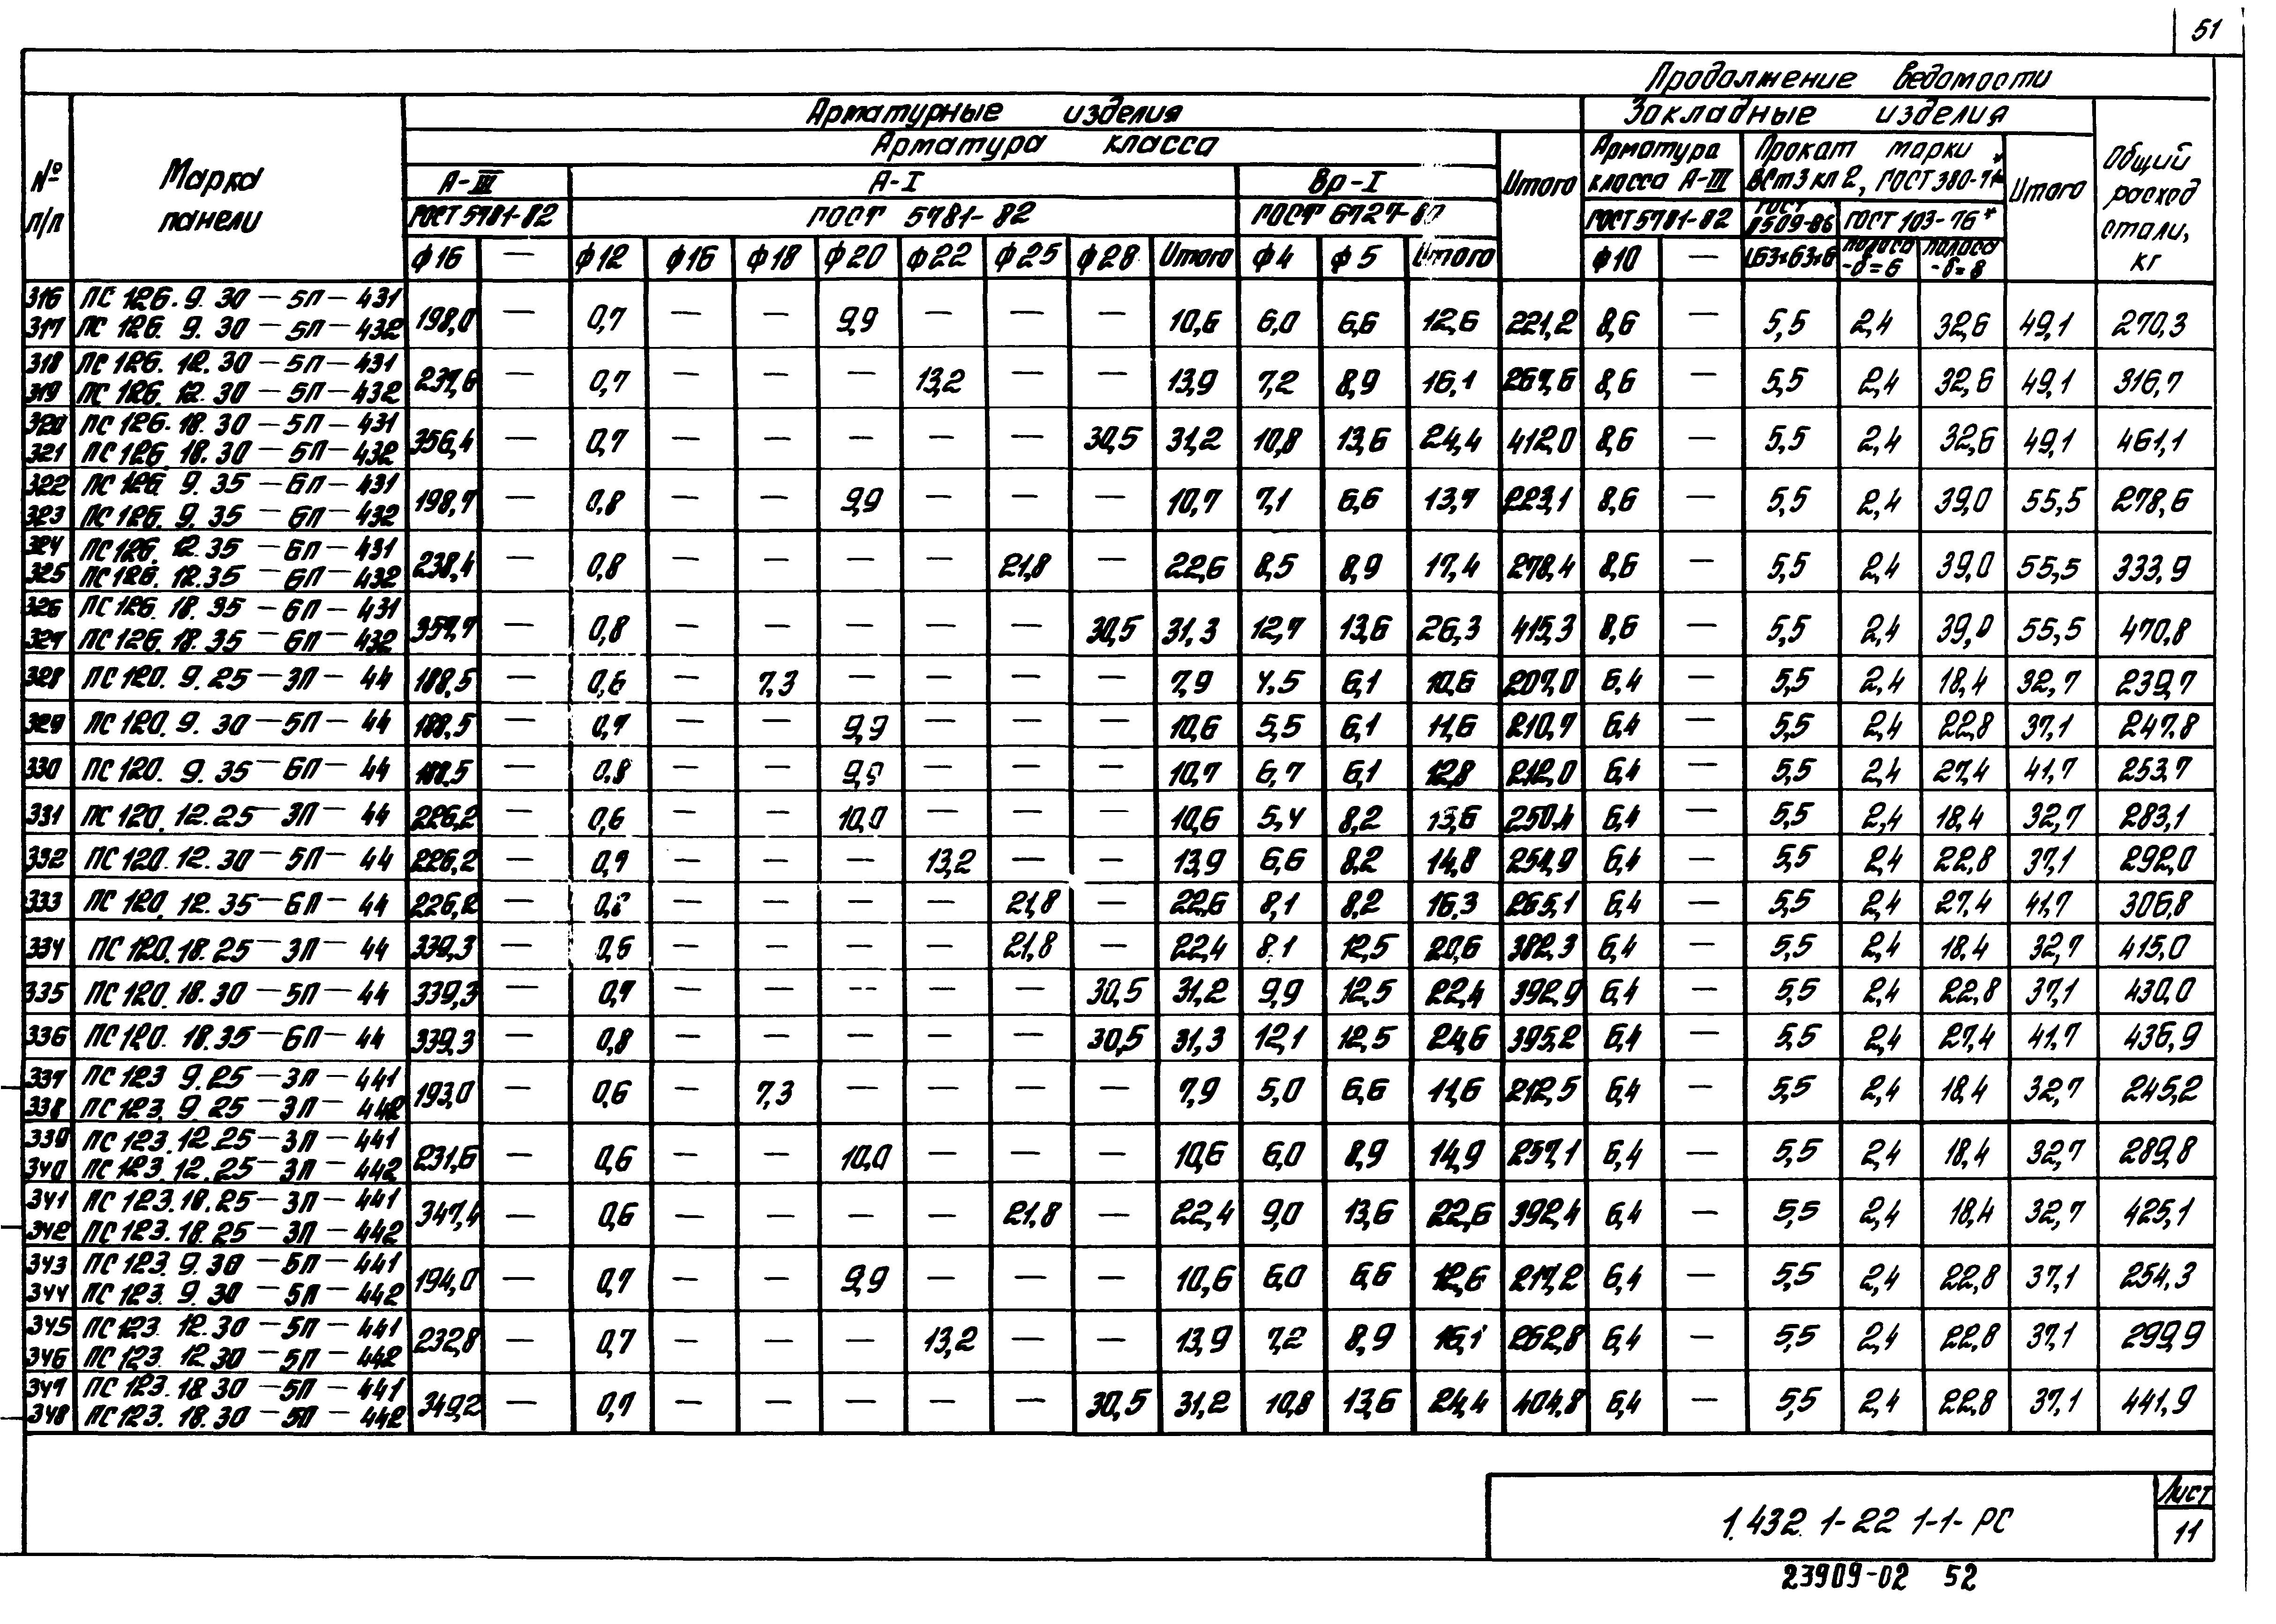 51
Продолжение ведомости
№ п/п | Марка панели | Арматурные изделия | Закладные изделия | Общий расход стали, кг
Арматура класса | Итого | Арматура класса А-III | Прокат марки ВСт3кп2, ГОСТ 380-71* | Итого
А-III | А-I | Вр-I
ГОСТ 5781-82 | ГОСТ 5781-82 | ГОСТ 6727-80 | ГОСТ 5781-82 | ГОСТ 8509-86 | ГОСТ 103-76*
ф16 | — | ф12 | ф16 | ф18 | ф20 | ф22 | ф25 | ф28 | Итого | ф4 | ф5 | Итого | ф10 | — | L63×63×6 | полоса -δ=6 | полоса -δ=8
316 ПС 126.9.30-5П-431
317 ПС 126.9.30-5П-432 | 198,0 | — | 0,7 | — | — | 9,9 | — | — | — | 10,6 | 6,0 | 6,6 | 12,6 | 221,2 | 8,6 | — | 5,5 | 2,4 | 32,6 | 49,1 | 270,3
318 ПС 126.12.30-5П-431
319 ПС 126.12.30-5П-432 | 237,6 | — | 0,7 | — | — | — | 13,2 | — | — | 13,9 | 7,2 | 8,9 | 16,1 | 267,6 | 8,6 | — | 5,5 | 2,4 | 32,6 | 49,1 | 316,7
320 ПС 126.18.30-5П-431
321 ПС 126.18.30-5П-432 | 356,4 | — | 0,7 | — | — | — | — | — | 30,5 | 31,2 | 10,8 | 13,6 | 24,4 | 412,0 | 8,6 | — | 5,5 | 2,4 | 32,6 | 49,1 | 461,1
322 ПС 126.9.35-6П-431
323 ПС 126.9.35-6П-432 | 198,7 | — | 0,8 | — | — | 9,9 | — | — | — | 10,7 | 7,1 | 6,6 | 13,7 | 223,1 | 8,6 | — | 5,5 | 2,4 | 39,0 | 55,5 | 278,6
324 ПС 126.12.35-6П-431
325 ПС 126.12.35-6П-432 | 238,4 | — | 0,8 | — | — | — | — | 21,8 | — | 22,6 | 8,5 | 8,9 | 17,4 | 278,4 | 8,6 | — | 5,5 | 2,4 | 39,0 | 55,5 | 333,9
326 ПС 126.18.35-6П-431
327 ПС 126.18.35-6П-432 | 357,7 | — | 0,8 | — | — | — | — | — | 30,5 | 31,3 | 12,7 | 13,6 | 26,3 | 415,3 | 8,6 | — | 5,5 | 2,4 | 39,0 | 55,5 | 470,8
328 ПС 120.9.25-3П-44 | 188,5 | — | 0,6 | — | 7,3 | — | — | — | — | 7,9 | 4,5 | 6,1 | 10,6 | 207,0 | 6,4 | — | 5,5 | 2,4 | 18,4 | 32,7 | 239,7
329 ПС 120.9.30-5П-44 | 188,5 | — | 0,7 | — | — | 9,9 | — | — | — | 10,6 | 5,5 | 6,1 | 11,6 | 210,7 | 6,4 | — | 5,5 | 2,4 | 22,8 | 37,1 | 247,8
330 ПС 120.9.35-6П-44 | 188,5 | — | 0,8 | — | — | 9,9 | — | — | — | 10,7 | 6,7 | 6,1 | 12,8 | 212,0 | 6,4 | — | 5,5 | 2,4 | 27,4 | 41,7 | 253,7
331 ПС 120.12.25-3П-44 | 226,2 | — | 0,6 | — | — | 10,0 | — | — | — | 10,6 | 5,4 | 8,2 | 13,6 | 250,4 | 6,4 | — | 5,5 | 2,4 | 18,4 | 32,7 | 283,1
332 ПС 120.12.30-5П-44 | 226,2 | — | 0,7 | — | — | — | 13,2 | — | — | 13,9 | 6,6 | 8,2 | 14,8 | 254,9 | 6,4 | — | 5,5 | 2,4 | 22,8 | 37,1 | 292,0
333 ПС 120.12.35-6П-44 | 226,2 | — | 0,8 | — | — | — | — | 21,8 | — | 22,6 | 8,1 | 8,2 | 16,3 | 265,1 | 6,4 | — | 5,5 | 2,4 | 27,4 | 41,7 | 306,8
334 ПС 120.18.25-3П-44 | 339,3 | — | 0,6 | — | — | — | — | 21,8 | — | 22,4 | 8,1 | 12,5 | 20,6 | 382,3 | 6,4 | — | 5,5 | 2,4 | 18,4 | 32,7 | 415,0
335 ПС 120.18.30-5П-44 | 339,3 | — | 0,7 | — | — | — | — | — | 30,5 | 31,2 | 9,9 | 12,5 | 22,4 | 392,9 | 6,4 | — | 5,5 | 2,4 | 22,8 | 37,1 | 430,0
336 ПС 120.18.35-6П-44 | 339,3 | — | 0,8 | — | — | — | — | — | 30,5 | 31,3 | 12,1 | 12,5 | 24,6 | 395,2 | 6,4 | — | 5,5 | 2,4 | 27,4 | 41,7 | 436,9
337 ПС 123.9.25-3П-441
338 ПС 123.9.25-3П-442 | 193,0 | — | 0,6 | — | 7,3 | — | — | — | — | 7,9 | 5,0 | 6,6 | 11,6 | 212,5 | 6,4 | — | 5,5 | 2,4 | 18,4 | 32,7 | 245,2
339 ПС 123.12.25-3П-441
340 ПС 123.12.25-3П-442 | 231,6 | — | 0,6 | — | — | 10,0 | — | — | — | 10,6 | 6,0 | 8,9 | 14,9 | 257,1 | 6,4 | — | 5,5 | 2,4 | 18,4 | 32,7 | 289,8
341 ПС 123.18.25-3П-441
342 ПС 123.18.25-3П-442 | 347,4 | — | 0,6 | — | — | — | — | 21,8 | — | 22,4 | 9,0 | 13,6 | 22,6 | 392,4 | 6,4 | — | 5,5 | 2,4 | 18,4 | 32,7 | 425,1
343 ПС 123.9.30-5П-441
344 ПС 123.9.30-5П-442 | 194,0 | — | 0,7 | — | — | 9,9 | — | — | — | 10,6 | 6,0 | 6,6 | 12,6 | 217,2 | 6,4 | — | 5,5 | 2,4 | 22,8 | 37,1 | 254,3
345 ПС 123.12.30-5П-441
346 ПС 123.12.30-5П-442 | 232,8 | — | 0,7 | — | — | — | 13,2 | — | — | 13,9 | 7,2 | 8,9 | 16,1 | 262,8 | 6,4 | — | 5,5 | 2,4 | 22,8 | 37,1 | 299,9
347 ПС 123.18.30-5П-441
348 ПС 123.18.30-5П-442 | 349,2 | — | 0,7 | — | — | — | — | — | 30,5 | 31,2 | 10,8 | 13,6 | 24,4 | 404,8 | 6,4 | — | 5,5 | 2,4 | 22,8 | 37,1 | 441,9
1.432.1-22 1-1-РС
Лист
11
23909-02 52